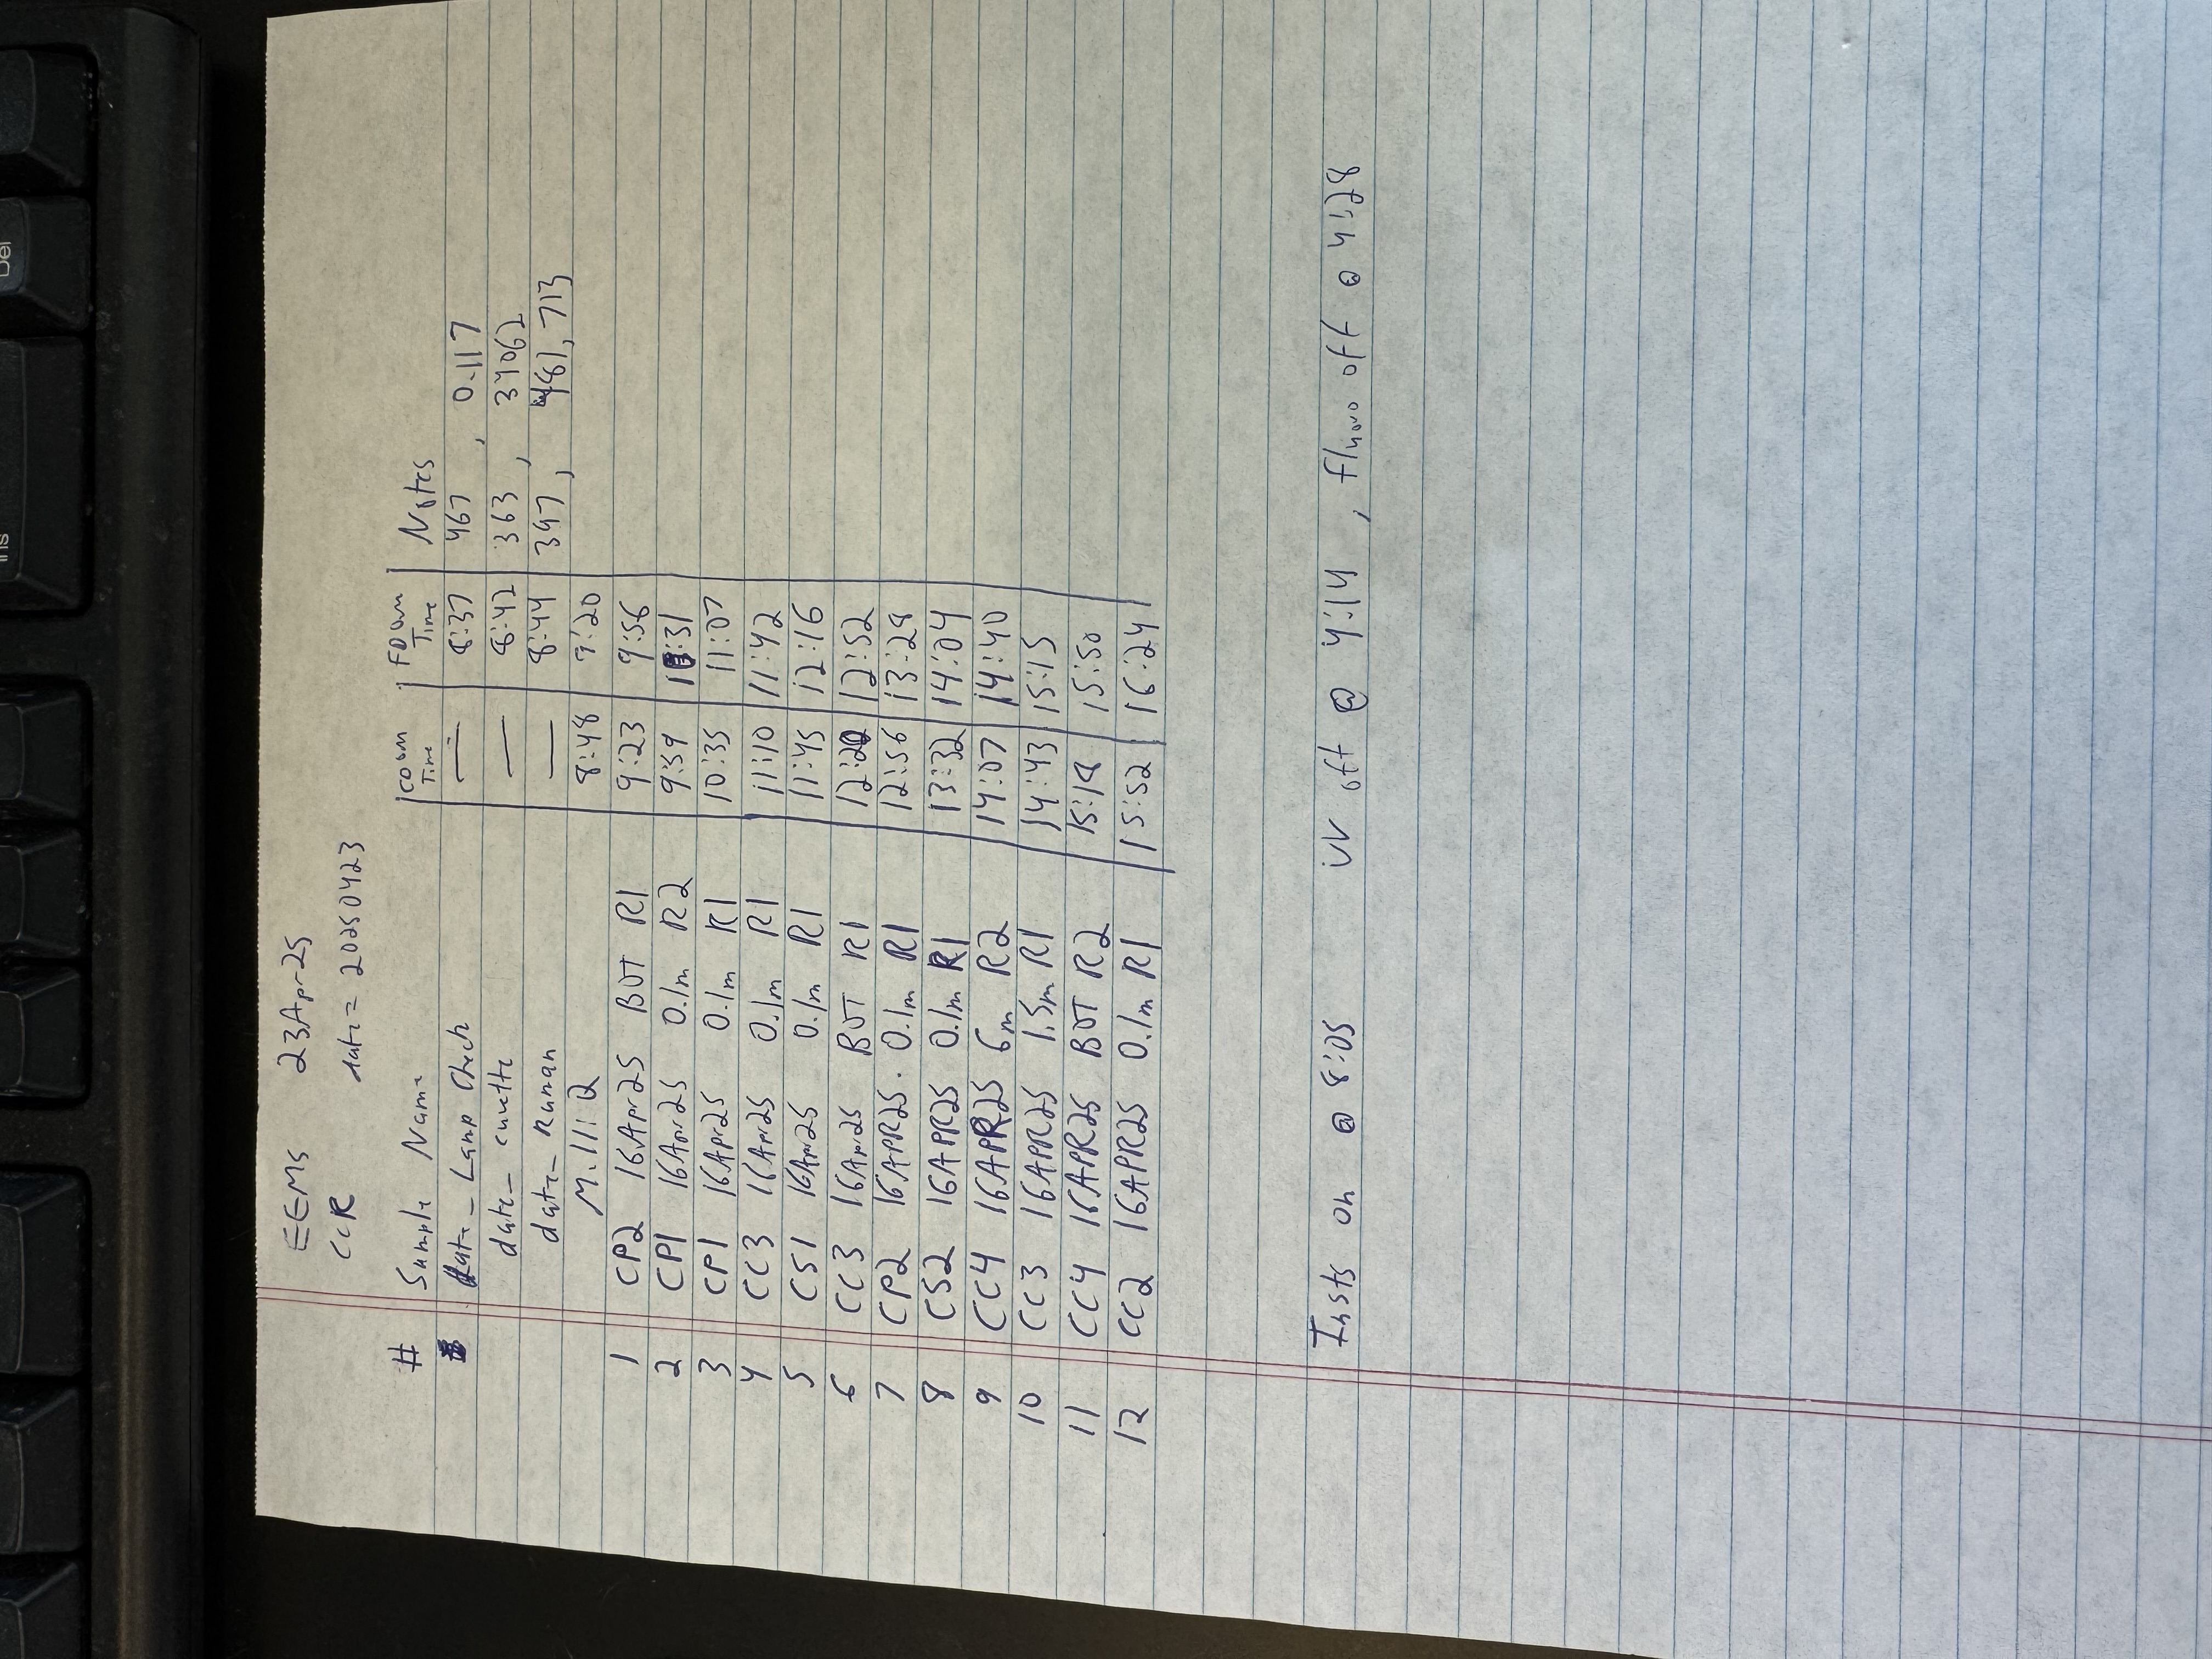 Ins
Del
EEMs 23Apr25
CCR date = 20250423
# Sample Name CDOM Time FDOM Time Notes
date_Lamp Check — 8:37 467, 0.117
date_cuvette — 8:42 363, 34062
date_Raman — 8:44 397, 481,713
MilliQ 8:48 9:20
1 CP2 16Apr25 BOT R1 9:23 9:56
2 CP1 16Apr25 0.1m R2 9:59 10:31
3 CP1 16Apr25 0.1m R1 10:35 11:07
4 CC3 16Apr25 0.1m R1 11:10 11:42
5 CS1 16Apr25 0.1m R1 11:45 12:16
6 CC3 16Apr25 BOT R1 12:20 12:52
7 CP2 16APR25. 0.1m R1 12:56 13:28
8 CS2 16APR25 0.1m R1 13:32 14:04
9 CC4 16APR25 6m R2 14:07 14:40
10 CC3 16APR25 1.5m R1 14:43 15:15
11 CC4 16APR25 BOT R2 15:18 15:50
12 CC2 16APR25 0.1m R1 15:52 16:24
Insts on @ 8:05 UV off @ 4:14, fluoro off @ 4:28